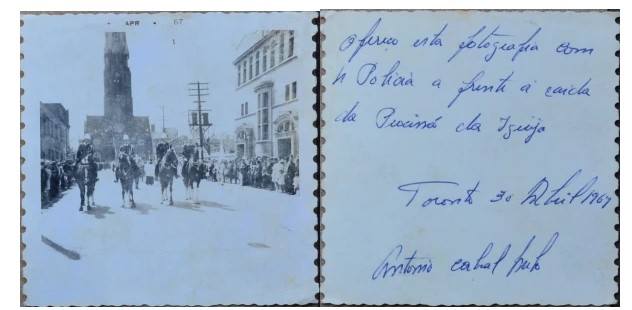 APR 67
1
Ofireco esta fotografia com
A Policia a frente á caida
da Procissã da Igreija
Toronto 30 Abril 1967
Antonio cabral